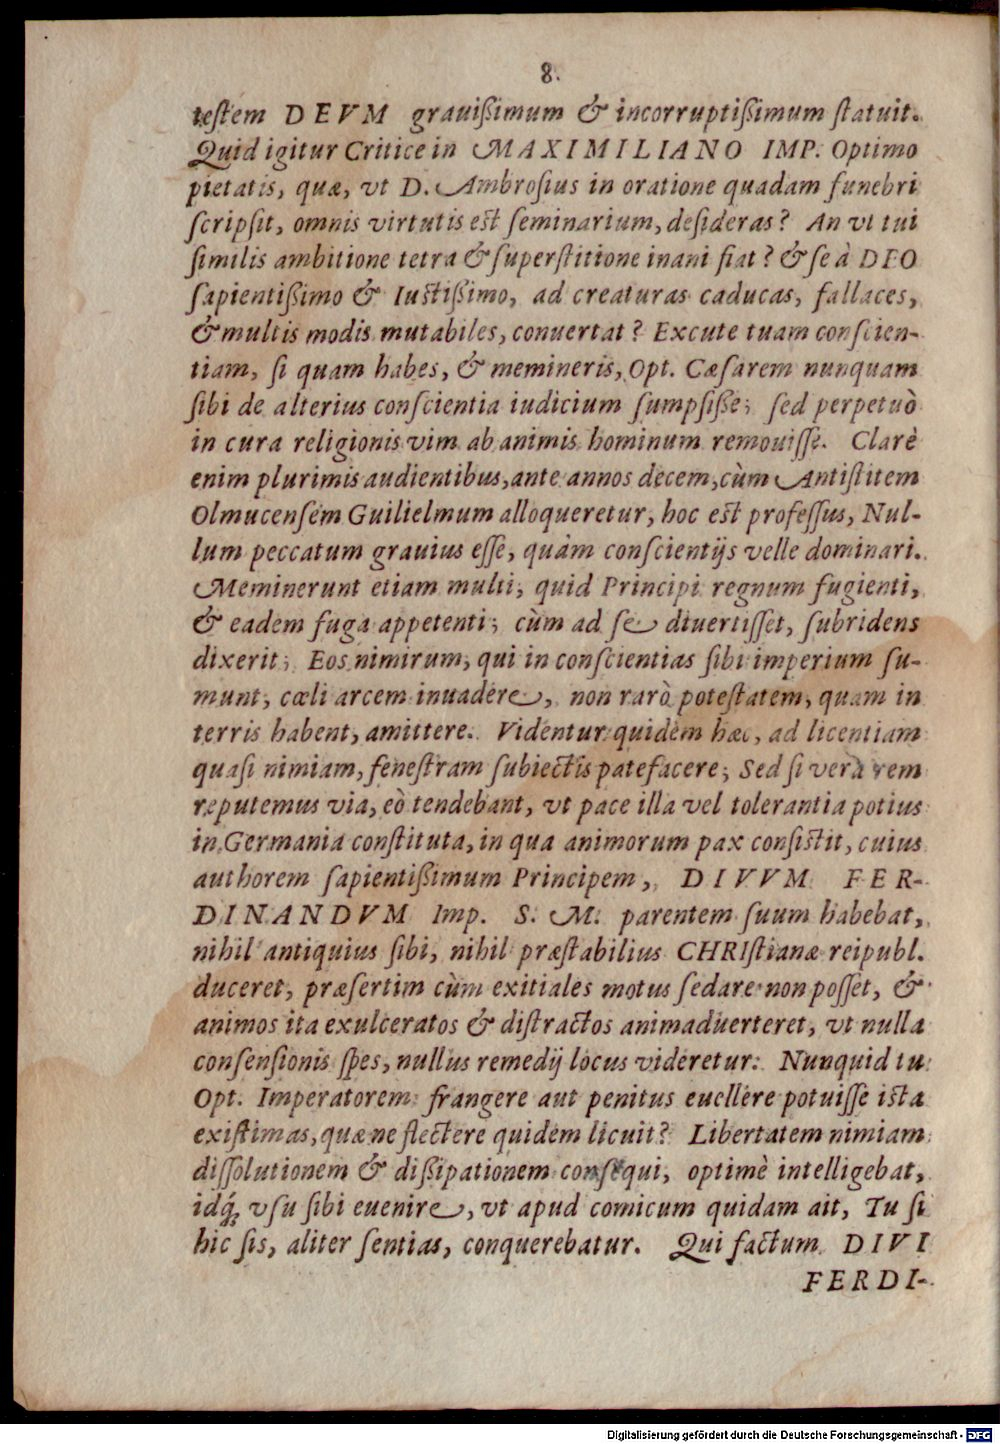 8.
testem DEVM grauißimum & incorruptißimum ſtatuit.
Quid igitur Critice in MAXIMILIANO IMP. Optimo
pietatis, quæ, vt D. Ambroſius in oratione quadam funebri
ſcripſit, omnis virtutis est ſeminarium, deſideras? An vt tui
ſimilis ambitione tetra & ſuperſtitione inani fiat? & ſe à DEO
ſapientißimo & Iustißimo, ad creaturas caducas, fallaces,
& multis modis mutabiles, conuertat? Excute tuam conſcien-
tiam, ſi quam habes, & memineris, Opt. Cæſarem nunquam
ſibi de alterius conſcientia iudicium ſumpſiße; ſed perpetuò
in cura religionis vim ab animis hominum remouiſſe. Clarè
enim plurimis audientibus, ante annos decem, cùm Antiſtitem
Olmucenſem Guilielmum alloqueretur, hoc est profeſſus, Nul-
lum peccatum grauius eſſe, quàm conſcientijs velle dominari.
Meminerunt etiam multi, quid Principi regnum fugienti,
& eadem fuga appetenti; cùm ad ſe diuertiſſet, ſubridens
dixerit; Eos nimirum, qui in conſcientias ſibi imperium ſu-
munt, cœli arcem inuadere, non rarò poteſtatem, quam in
terris habent, amittere. Videntur quidem hæc, ad licentiam
quaſi nimiam, feneſtram ſubiectis patefacere; Sed ſi verà rem
reputemus via, eò tendebant, vt pace illa vel tolerantia potius
in Germania conſtituta, in qua animorum pax conſistit, cuius
authorem ſapientißimum Principem, DIVVM FER-
DINANDVM Imp. S. M. parentem ſuum habebat,
nihil antiquius ſibi, nihil præſtabilius CHRIſtianæ reipubl.
duceret, præſertim cùm exitiales motus ſedare non poſſet, &
animos ita exulceratos & diſtractos animaduerteret, vt nulla
conſenſionis ſpes, nullus remedij locus videretur. Nunquid tu
Opt. Imperatorem frangere aut penitus euellere potuiſſe iſta
exiſtimas, quæ ne flectere quidem licuit? Libertatem nimiam
diſſolutionem & dißipationem conſequi, optimè intelligebat,
idq́; vſu ſibi euenire, vt apud comicum quidam ait, Tu ſi
hic ſis, aliter ſentias, conquerebatur. Qui factum DIVI
FERDI-
Digitalisierung gefördert durch die Deutsche Forschungsgemeinschaft - DFG